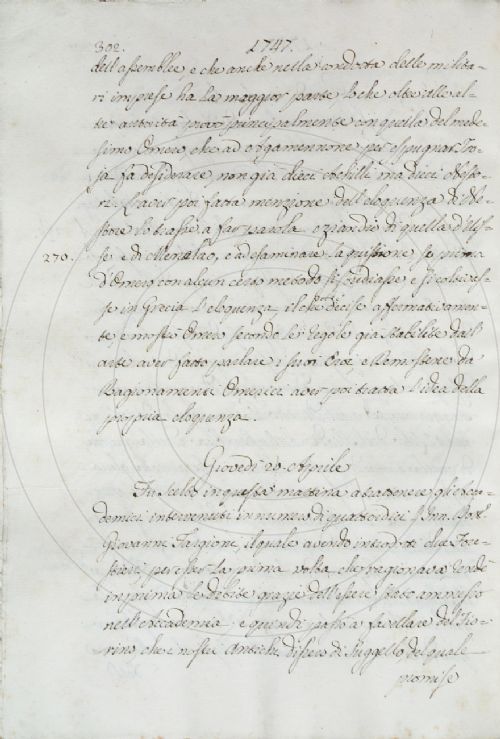 302. 1747.
dell'assemblee, e che anche nella condotta delle milita-
ri imprese ha la maggior parte lo che oltre all'al-
tre autorità provò principalmente con quella del mede-
simo Omero, che ad Agamennone per espugnar Tro-
ja fa desiderare non già dieci Achilli ma dieci Nesto-
ri. L'aver poi fatta menzione dell'eloquenza di Ne-
store lo trasse a far parola eziandio di quella d'Ulis-
se e di Menelao, e ad esaminare la quistione se prima
270. d'Omero con alcun certo metodo si studiasse e si coltivas-
se in Grecia l'eloquenza, il che decise affermativamen-
te e mostrò Omero secondo le regole già stabilite dall'
arte aver fatto parlare i suoi Eroi, e Demostene da
Ragionamenti Omerici aver poi tratta l'idea della
propria eloquenza.
Giovedì 20. Aprile
Fu scelto in questa mattina a trattenere gli Acca-
demici intervenuti in numero di quattordici il Sig. Dott.
Giovanni Targioni, il quale avendo introdotti due Fore-
stieri, per esser la prima volta che ragionava rendè
in prima le debite grazie dell'essere stato ammesso
nell'Accademia e quindi passò a favellare del Fio-
rino che i nostri Antichi dissero di Suggello, del quale
promise